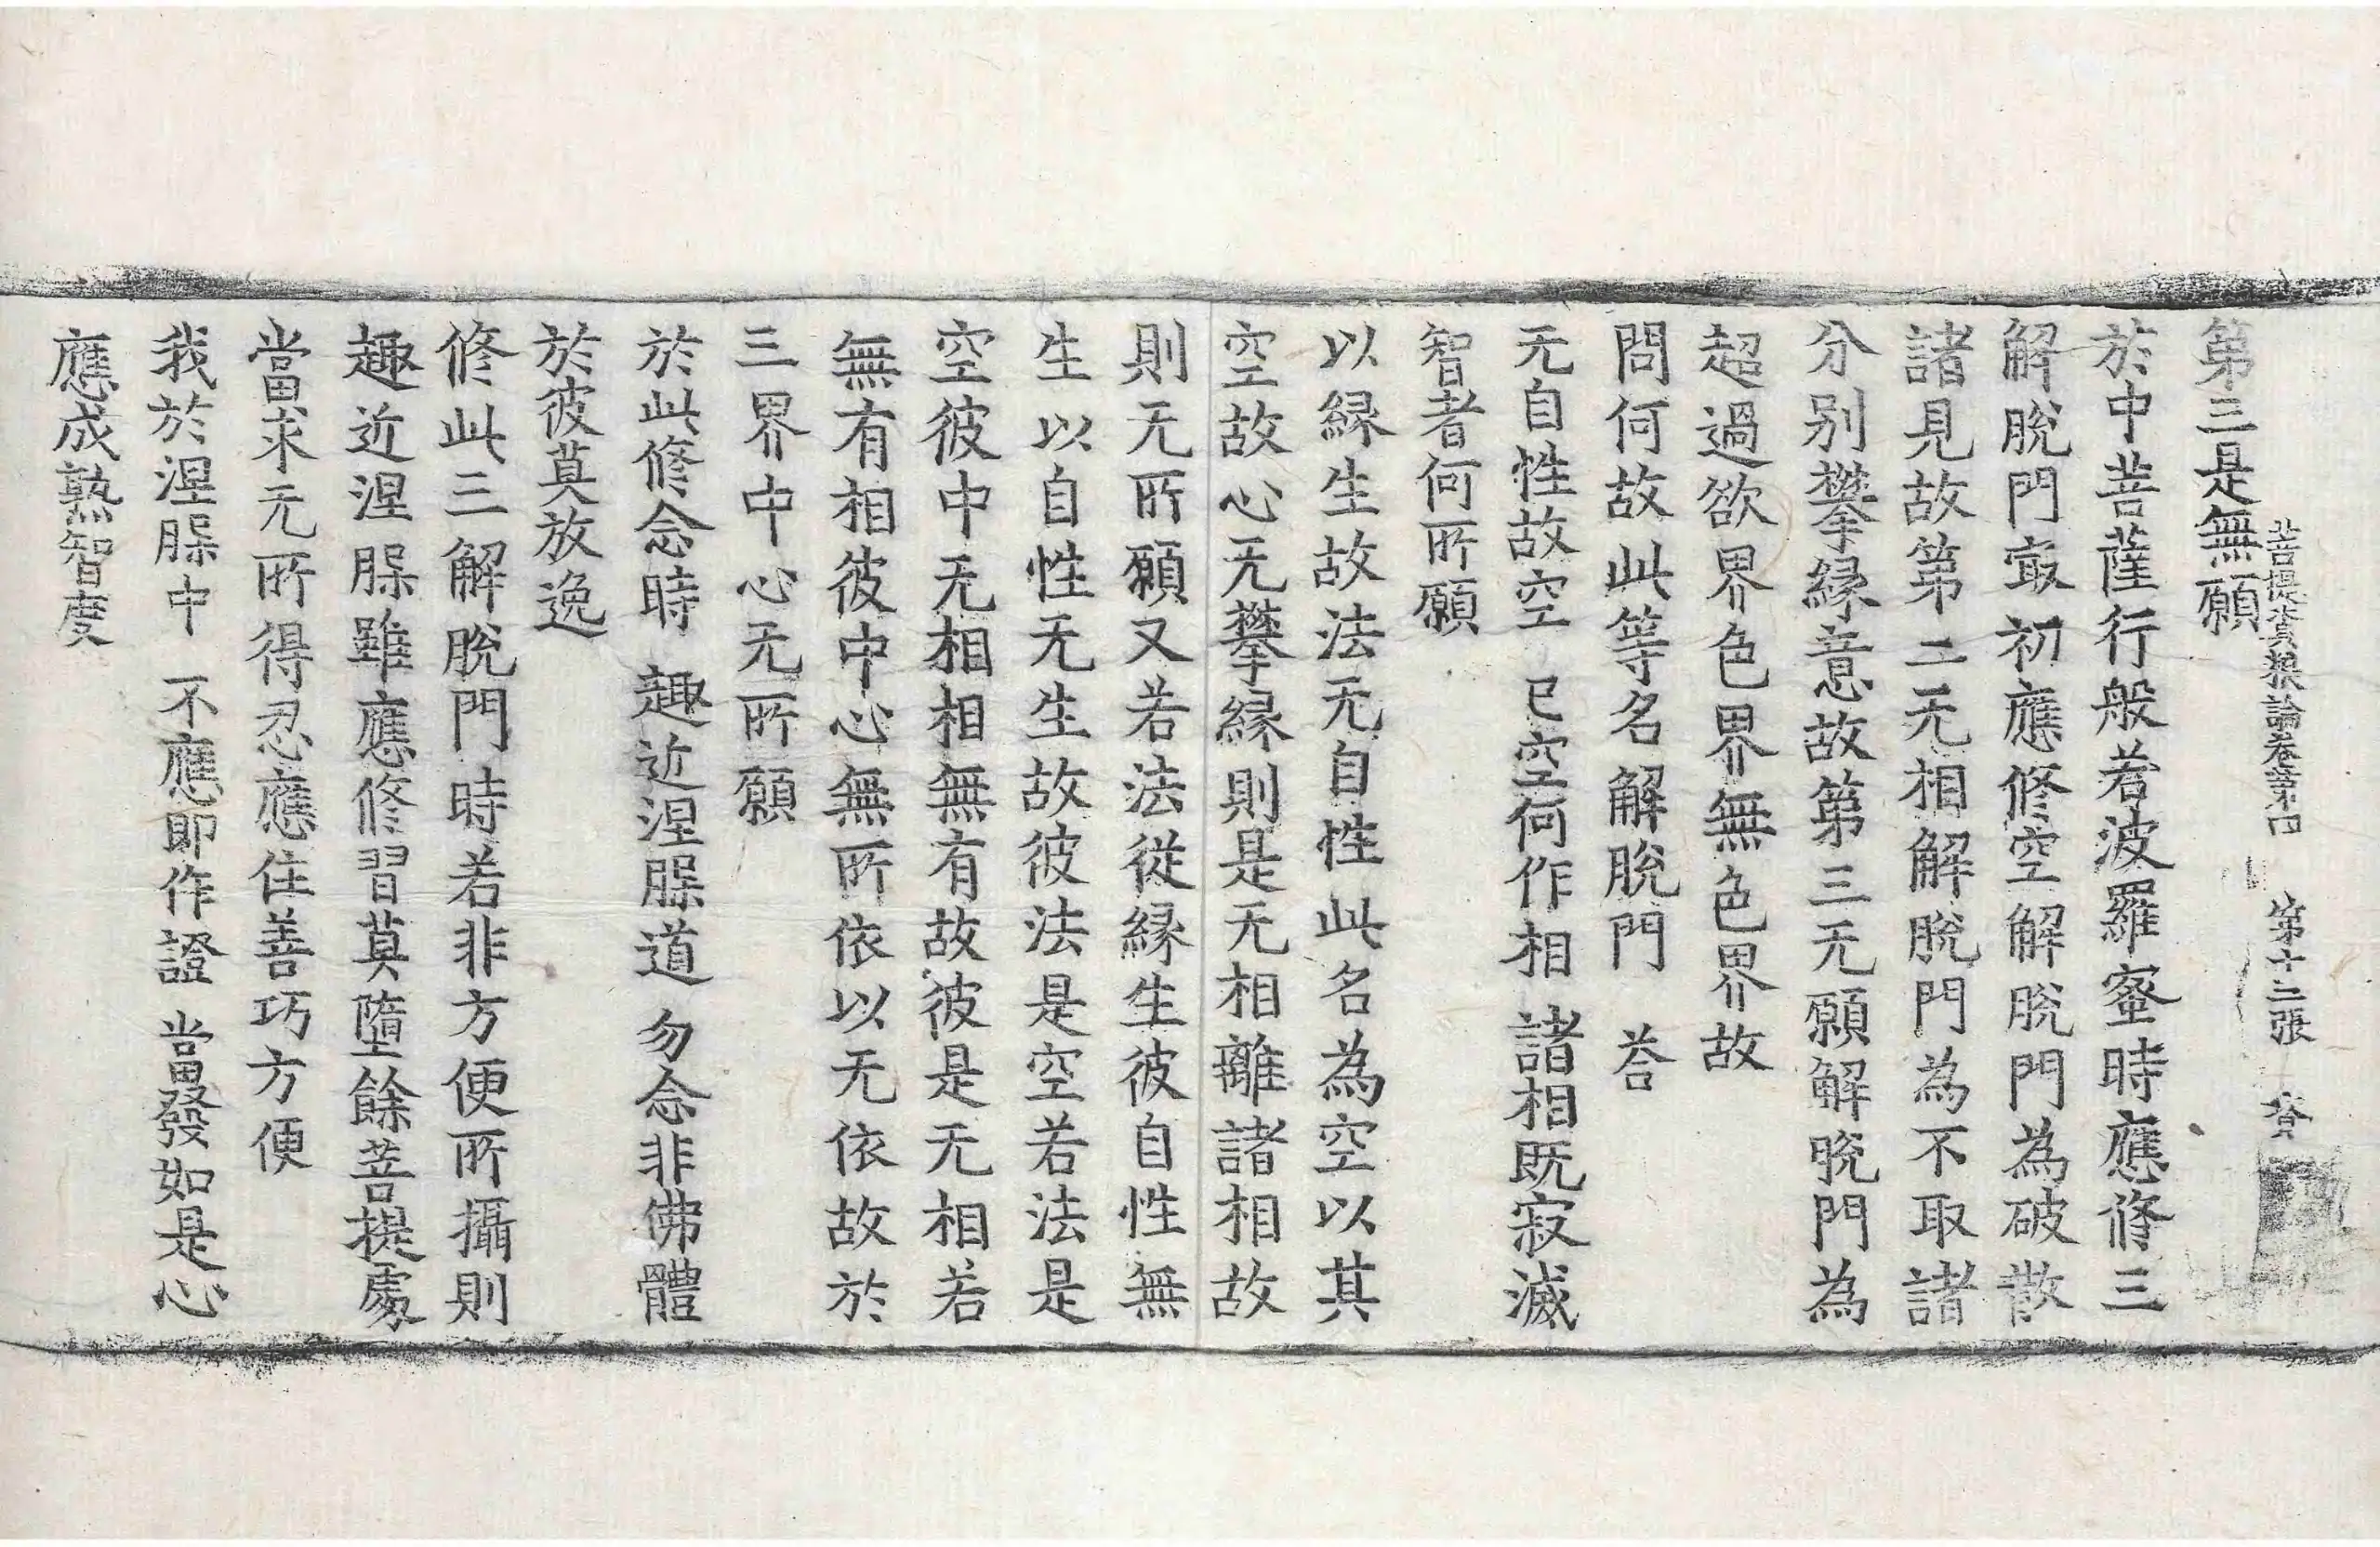 菩提資粮論卷第四 第十二張 資
第三是無願
於中菩薩行般若波羅蜜時應修三
解脫門㝡初應修空解脫門為破散
諸見故第二无相解脫門為不取諸
分別攀緣意故第三无願解脫門為
超過欲界色界無色界故
問何故此等名解脫門 荅
无自性故空 已空何作相 諸相既寂滅
智者何所願
以緣生故法无自性此名為空以其
空故心无攀緣則是无相離諸相故
則无所願又若法從緣生彼自性無
生以自性无生故彼法是空若法是
空彼中无相相無有故彼是无相若
無有相彼中心無所依以无依故於
三界中心无所願
於此修念時 趣近涅槃道 勿念非佛體
於彼莫放逸
修此三解脫門時若非方便所攝則
趣近涅槃雖應修習莫墮餘菩提處
當求无所得忍應住善巧方便
我於涅槃中 不應即作證 當發如是心
應成熟智度